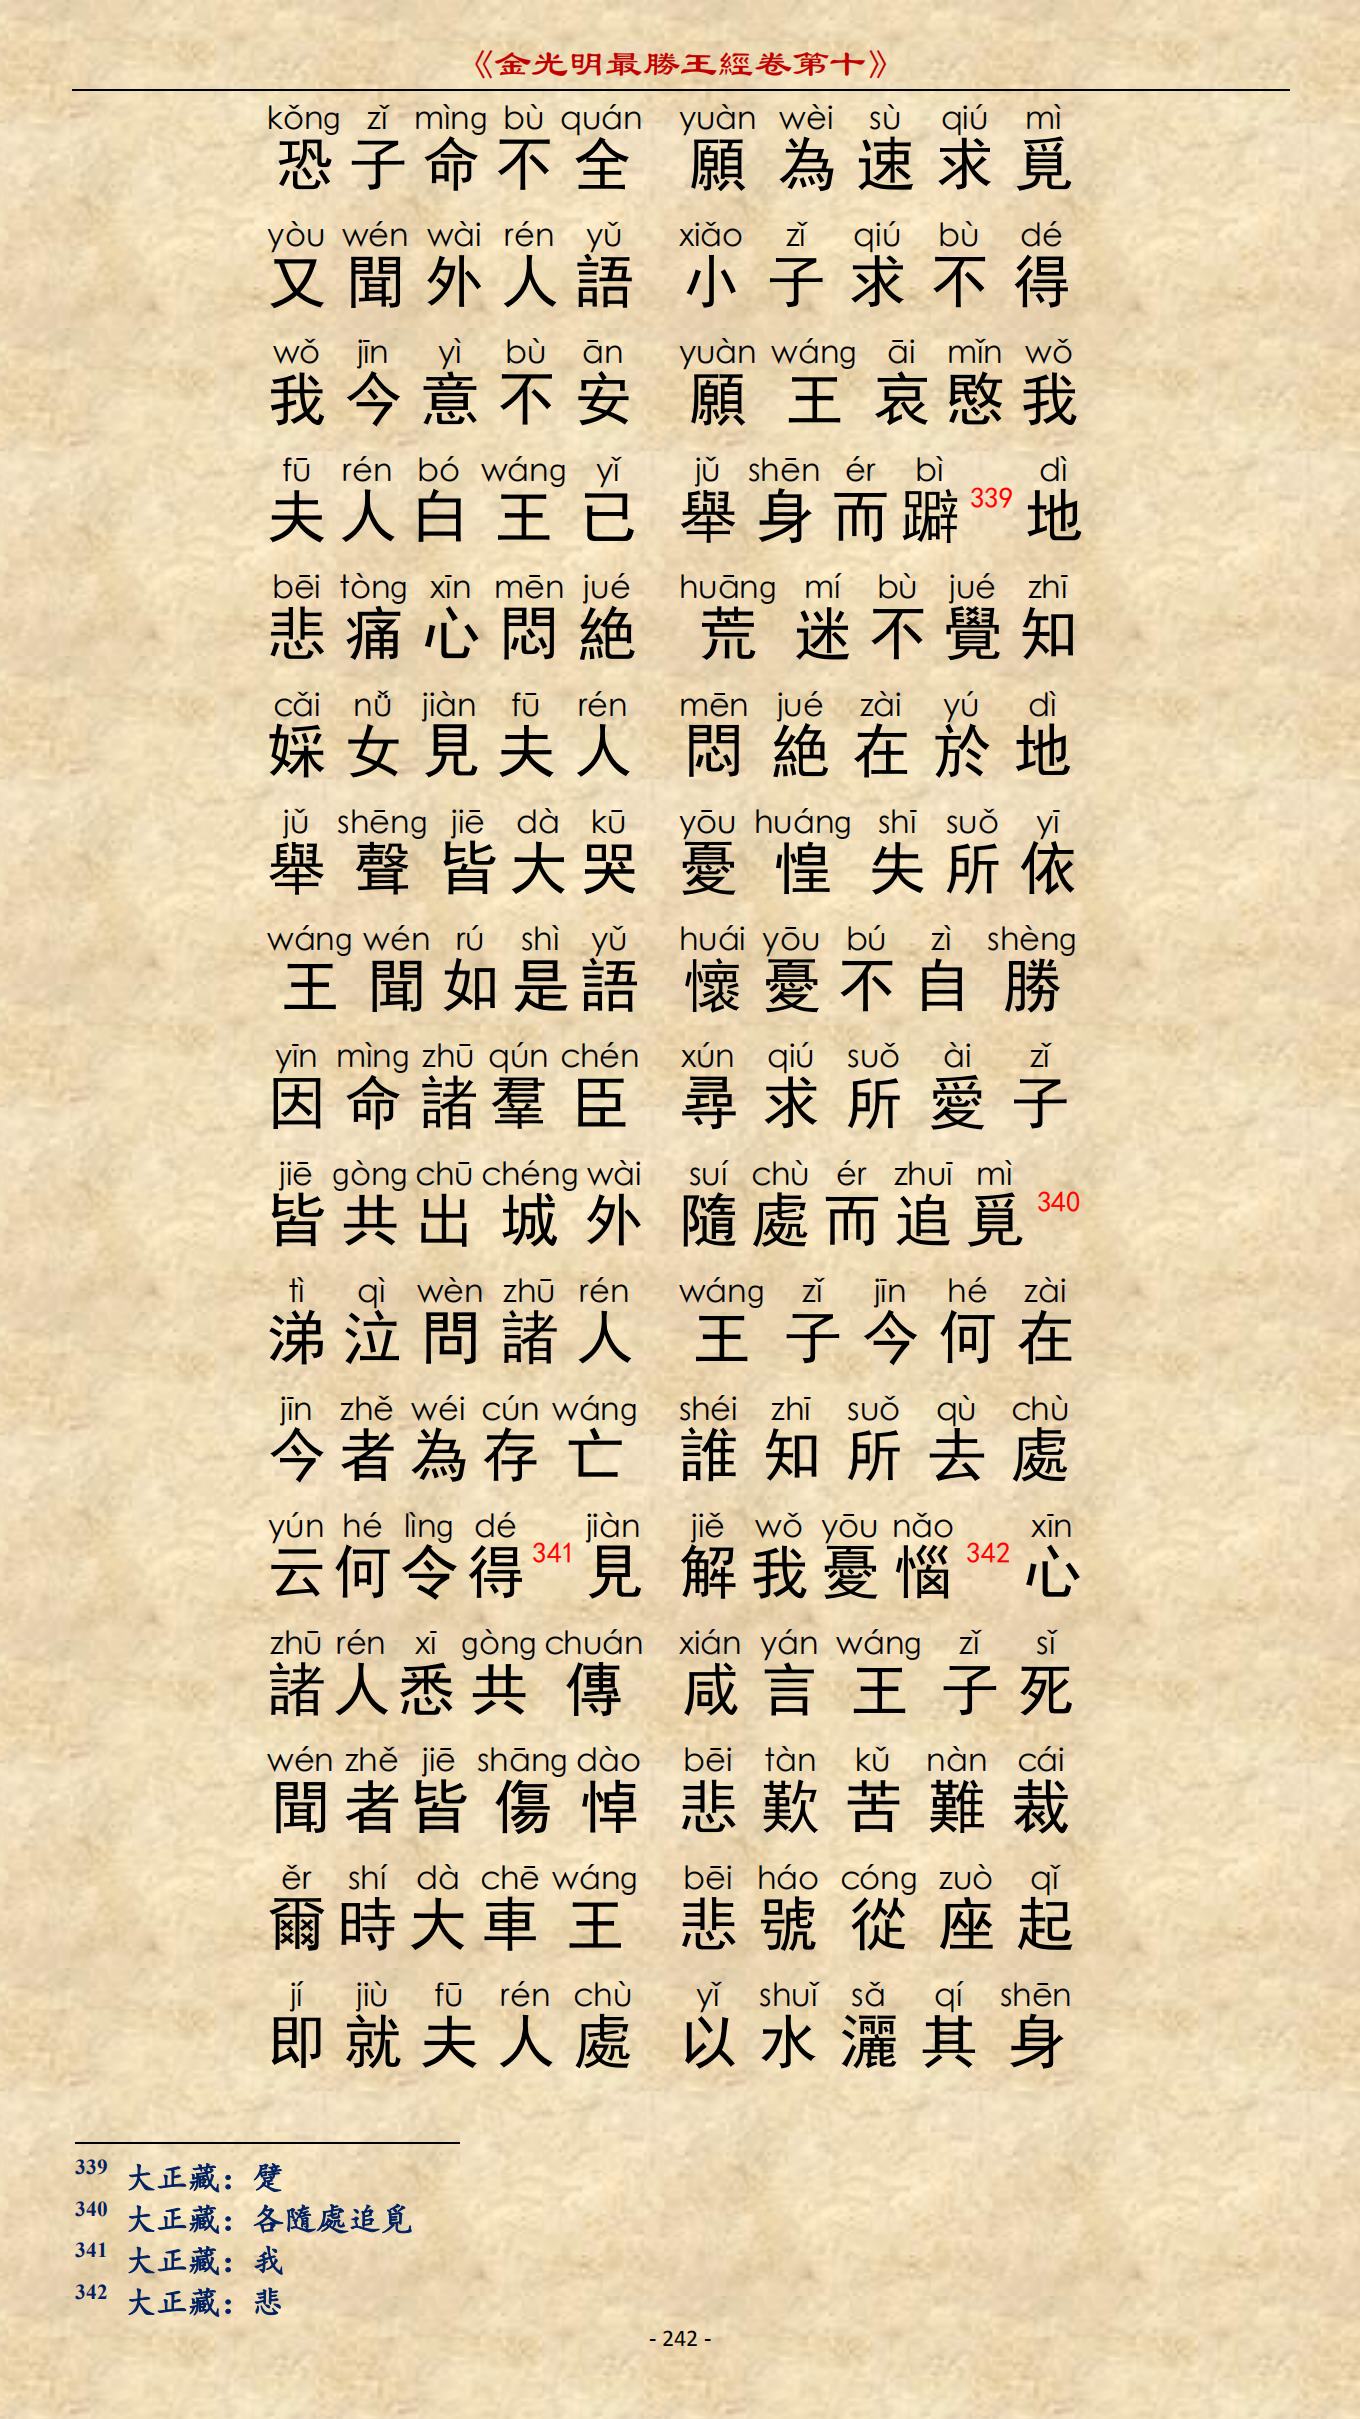 《金光明最勝王經卷第十》
kǒng zǐ mìng bù quán yuàn wèi sù qiú mì
恐子命不全 願為速求覓
yòu wén wài rén yǔ xiǎo zǐ qiú bù dé
又聞外人語 小子求不得
wǒ jīn yì bù ān yuàn wáng āi mǐn wǒ
我今意不安 願王哀愍我
fū rén bó wáng yǐ jǔ shēn ér bì dì
夫人白王已 舉身而躃339地
bēi tòng xīn mēn jué huāng mí bù jué zhī
悲痛心悶絕 荒迷不覺知
cǎi nǚ jiàn fū rén mēn jué zài yú dì
婇女見夫人 悶絕在於地
jǔ shēng jiē dà kū yōu huáng shī suǒ yī
舉聲皆大哭 憂惶失所依
wáng wén rú shì yǔ huái yōu bú zì shèng
王聞如是語 懷憂不自勝
yīn mìng zhū qún chén xún qiú suǒ ài zǐ
因命諸羣臣 尋求所愛子
jiē gòng chū chéng wài suí chù ér zhuī mì
皆共出城外 隨處而追覓340
tì qì wèn zhū rén wáng zǐ jīn hé zài
涕泣問諸人 王子今何在
jīn zhě wéi cún wáng shéi zhī suǒ qù chù
今者為存亡 誰知所去處
yún hé lìng dé jiàn jiě wǒ yōu nǎo xīn
云何令得341見 解我憂惱342心
zhū rén xī gòng chuán xián yán wáng zǐ sǐ
諸人悉共傳 咸言王子死
wén zhě jiē shāng dào bēi tàn kǔ nàn cái
聞者皆傷悼 悲歎苦難裁
ěr shí dà chē wáng bēi háo cóng zuò qǐ
爾時大車王 悲號從座起
jí jiù fū rén chù yǐ shuǐ sǎ qí shēn
即就夫人處 以水灑其身
339 大正藏：躄
340 大正藏：各隨處追覓
341 大正藏：我
342 大正藏：悲
- 242 -